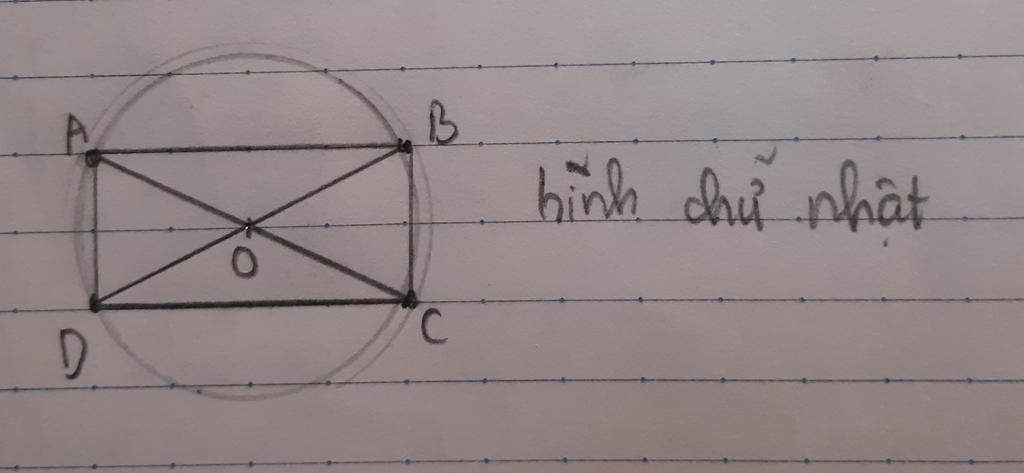 A
B
hình chữ nhật
O
D
C